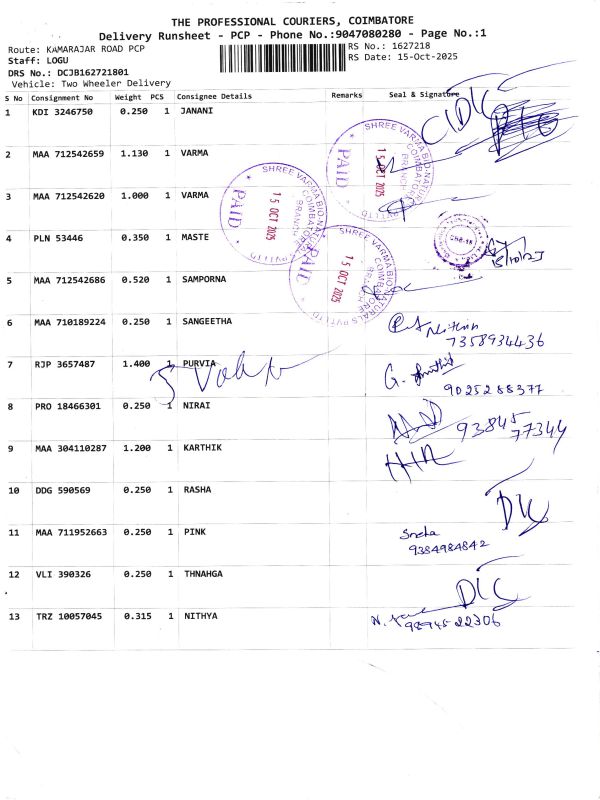 THE PROFESSIONAL COURIERS, COIMBATORE
Delivery Runsheet - PCP - Phone No.:9047080280 - Page No.:1
Route: KAMARAJAR ROAD PCP
RS No.: 1627218
Staff: LOGU
RS Date: 15-Oct-2025
DRS No.: DCJB162721801
Vehicle: Two Wheeler Delivery
S No Consignment No Weight PCS Consignee Details Remarks Seal & Signature
1 KDI 3246750 0.250 1 JANANI
2 MAA 712542659 1.130 1 VARMA
SHREE VARMA BIO NATURALS PVT LTD
COIMBATORE BRANCH
15 OCT 2025
PAID
3 MAA 712542620 1.000 1 VARMA
SHREE VARMA BIO NATURALS PVT LTD
COIMBATORE BRANCH
15 OCT 2025
PAID
4 PLN 53446 0.350 1 MASTE
15/10/25
SHREE VARMA BIO NATURALS PVT LTD
COIMBATORE BRANCH
15 OCT 2025
PAID
5 MAA 712542686 0.520 1 SAMPORNA
6 MAA 710189224 0.250 1 SANGEETHA
7358934436
7 RJP 3657487 1.400 1 PURVIA
G.
9025288377
8 PRO 18466301 0.250 1 NIRAI
93845
77344
9 MAA 304110287 1.200 1 KARTHIK
10 DDG 590569 0.250 1 RASHA
11 MAA 711952663 0.250 1 PINK
Sneha
9384984842
12 VLI 390326 0.250 1 THNAHGA
13 TRZ 10057045 0.315 1 NITHYA
N.
9894522306